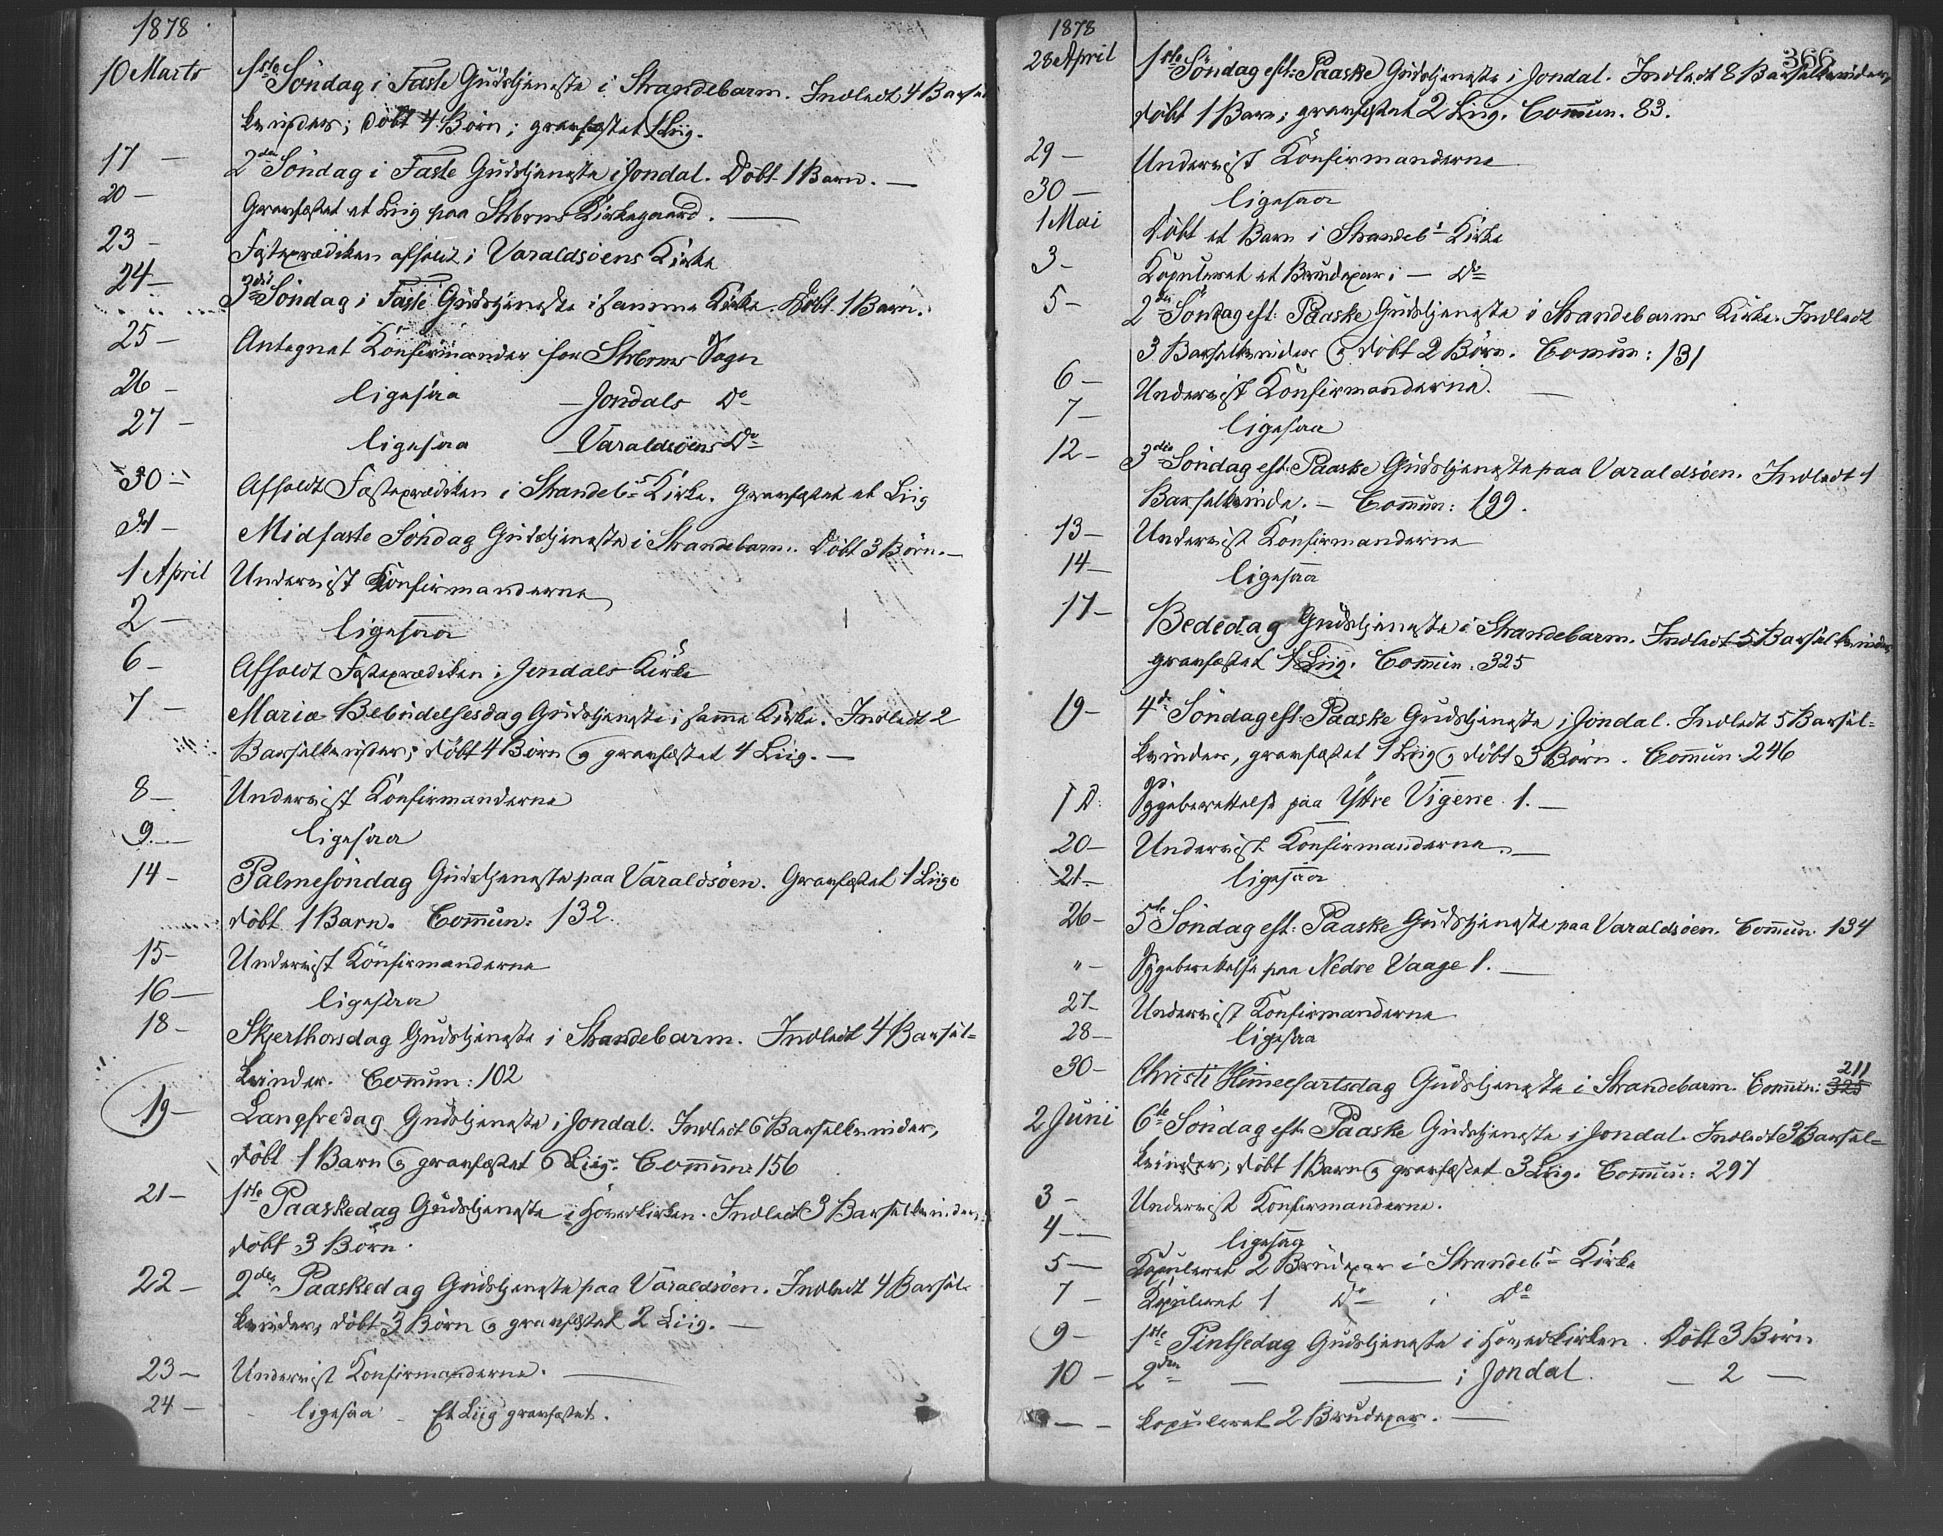 1878
10 Marts 1ste Söndag i Faste Gudstjeneste i Strandebarm. Indledt 4 Barsel
kvinder; döbt 4 Börn; gravfæstet 1 Liig.
17 — 2den Söndag i Faste Gudstjeneste i Jondal. Döbt 1 Barn. —
20 — Gravfæstet et Liig paa Stbrms Kirkegaard. —
23 — Fasteprædiken afholdt i Varaldsöens Kirke
24 — 3die Söndag i Faste Gudstjeneste i samme Kirke. Döbt 1 Barn.
25 — Antegnet Konfirmander for Stbrms Sogn
26 — ligesaa — Jondals Do
27 — ligesaa — Varaldsöens Do
30 — Afholdt Fasteprædiken i Strandebs Kirke. Gravfæstet et Liig
31 — Midfaste Söndag Gudstjeneste i Strandebarm. Döbt 3 Börn. —
1 April Undervist Konfirmanderne
2 — ligesaa
6 — Afholdt Fasteprædiken i Jondals Kirke
7 — Mariæ Bebudelsesdag Gudstjeneste i samme Kirke. Indledt 2
Barselkvinder; döbt 4 Börn og gravfæstet 4 Liig. —
8 — Undervist Konfirmanderne
9 — ligesaa
14 — Palmesöndag Gudstjeneste paa Varaldsöen. Gravfæstet 1 Liig
döbt 1 Barn. Commun: 132.
15 — Undervist Konfirmanderne
16 — ligesaa
18 — Skjerthorsdag Gudstjeneste i Strandebarm. Indledt 4 Barsel-
kvinder. Commun: 102
19 — Langfredag Gudstjeneste i Jondal. Indledt 6 Barselkvinder,
döbt 1 Barn og gravfæstet 6 Liig. Commun: 156
21 — 1ste Paaskedag Gudstjeneste i Hovedkirken. Indledt 3 Barselkvinder.
döbt 3 Börn.
22 — 2den Paaskedag Gudstjeneste paa Varaldsöen. Indledt 4 Barsel-
kvinder, döbt 3 Börn og gravfæstet 2 Liig. —
23 — Undervist Konfirmanderne. —
24 — ligesaa — Et Liig gravfæstet.
1878
366
28 April 1ste Söndag eft: Paaske Gudstjeneste i Jondal. Indledt 8 Barselkvinder,
döbt 1 Barn; gravfæstet 2 Liig. Commun. 83.
29 — Undervist Konfirmanderne
30 — ligesaa
1 Mai Döbt et Barn i Strandebs Kirke
3 — Kopuleret et Brudepar i — Do
5 — 2den Söndag eft: Paaske Gudstjeneste i Strandebarms Kirke. Indledt
3 Barselkvinder og döbt 2 Börn. Commun: 131
6 — Undervist Konfirmanderne. —
7 — ligesaa
12 — 3die Söndag eft: Paaske Gudstjeneste paa Varaldsöen. Indledt 1
Barselkvinde. — Commun: 199.
13 — Undervist Konfirmanderne
14 — ligesaa
17 — Bededag Gudstjeneste i Strandebarm. Indledt 5 Barselkvinder
gravfæstet 1 Liig. Commun: 325
19 — 4de Söndag eft: Paaske Gudstjeneste i Jondal. Indledt 5 Barsel-
kvinder, gravfæstet 1 Liig og döbt 3 Börn. Commun: 246
Sygeberettelse paa Yttre Vigene 1. —
20 — Undervist Konfirmanderne. —
21 — ligesaa
26 — 5te Söndag eft: Paaske Gudstjeneste paa Varaldsöen. Commun: 134
" — Sygeberettelse paa Nedre Vaage 1. —
27 — Undervist Konfirmanderne
28 — ligesaa
30 — Christi Himmelfartsdag Gudstjeneste i Strandebarm. Commun: 325 211
2 Juni 6te Söndag eft: Paaske Gudstjeneste i Jondal. Indledt 3 Barsel-
kvinder; döbt 1 Barn og gravfæstet 3 Liig. Commun: 297
3 — Undervist Konfirmanderne.
4 — ligesaa
5 — Kopuleret 2 Brudepar i Strandebs Kirke
7 — Kopuleret 1 Do i Do
9 — 1ste Pintsedag Gudstjeneste i Hovedkirken. Döbt 3 Börn
10 — 2den — — i Jondal. — 2 —
— Kopuleret 2 Brudepar. —